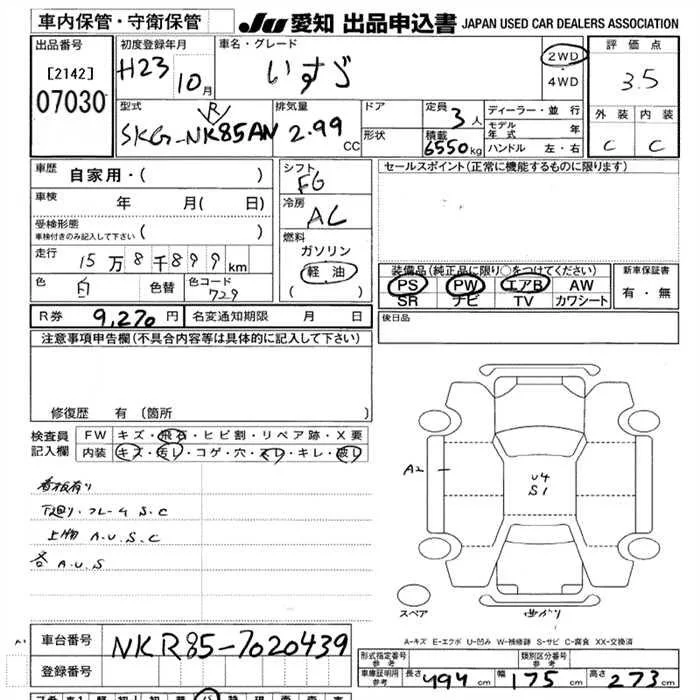 車内保管・守衛保管 JU 愛知 出品申込書 JAPAN USED CAR DEALERS ASSOCIATION
出品番号 初度登録年月 車名・グレード 評価点
[2142] H23 10月 いすゞ 2WD 3.5
07030 4WD
型式 R 排気量 ドア 定員 3人 ディーラー・並行 外装 内装
SKG-NK85AN 2.99 CC 形状 積載 6550kg モデル年式 年 C C
ハンドル 左・右
車歴 自家用・( ) シフト F6 セールスポイント(正常に機能するものに限ります)
車検 年 月( 日) 冷房 AC
受検形態 ( )
車検付きのみ記入して下さい
燃料
走行 15万8千899km ガソリン
色 白 色替 色コード 729 軽油 ( )
装備品(純正品に限り○をつけてください) 新車保証書
PS PW エアB AW 有・無
SR ナビ TV カワシート
R券 9,270円 名変通知期限 月 日 後日品
注意事項申告欄(不具合内容等は具体的に記入して下さい)
修復歴 有 (箇所 )
検査員記入欄 FW キズ・飛石・ヒビ割・リペア跡・X要
内装 キズ・汚レ・コゲ・穴・スレ・キレ・破レ
看板有り
下廻り・フレーム S.C
上物 A.U.S.C
各 A.U.S
A2
U4
S1
スペア 曲がり
A-キズ E-エクボ U-凹み W-補修跡 S-サビ C-腐食 XX-交換済
A1
車台番号 NKR85-7020439
登録番号
形式指定番号 参考 類別区分番号 参考
車庫証明用 参考 長さ 494cm 幅 175cm 高さ 273cm